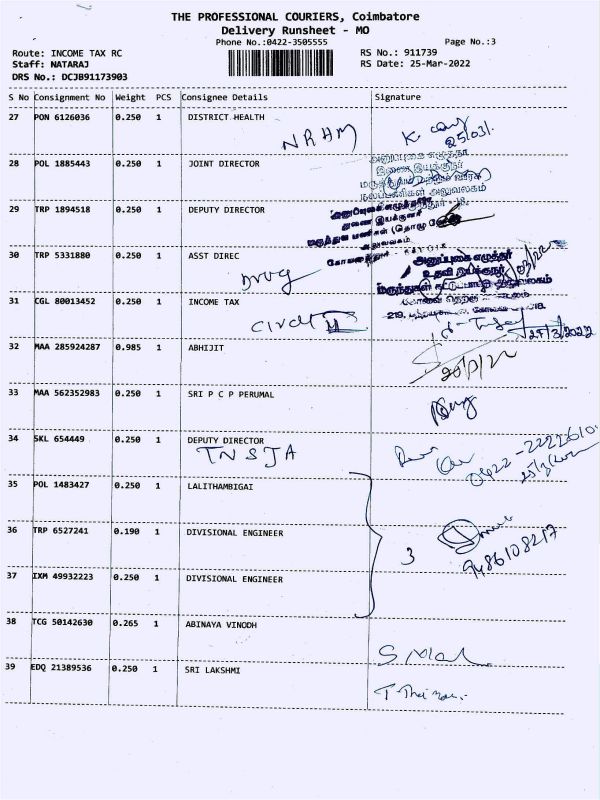 THE PROFESSIONAL COURIERS, Coimbatore
Delivery Runsheet - MO
Phone No.:0422-3505555 Page No.:3
Route: INCOME TAX RC RS No.: 911739
Staff: NATARAJ RS Date: 25-Mar-2022
DRS No.: DCJB91173903
S No Consignment No Weight PCS Consignee Details Signature
27 PON 6126036 0.250 1 DISTRICT HEALTH
NRHM K. 25/03/
28 POL 1885443 0.250 1 JOINT DIRECTOR
அனுப்புகை எழுத்தர்
இணை இயக்குநர்
நலப்பணிகள் அலுவலகம்
29 TRP 1894518 0.250 1 DEPUTY DIRECTOR
அனுப்புகை எழுத்தர்
துணை இயக்குனர்
மருத்துவ பணிகள் (தொழு
அலுவலகம்
30 TRP 5331880 0.250 1 ASST DIREC
Drug
அனுப்புகை எழுத்தர்
உதவி இயக்குநர்
31 CGL 80013452 0.250 1 INCOME TAX
219,
Circle 25/3/2022
32 MAA 285924287 0.985 1 ABHIJIT
33 MAA 562352983 0.250 1 SRI P C P PERUMAL
34 SKL 654449 0.250 1 DEPUTY DIRECTOR
TNSJA 0422-2222610
35 POL 1483427 0.250 1 LALITHAMBIGAI
36 TRP 6527241 0.190 1 DIVISIONAL ENGINEER
3 9486108217
37 IXM 49932223 0.250 1 DIVISIONAL ENGINEER
38 TCG 50142630 0.265 1 ABINAYA VINODH
39 EDQ 21389536 0.250 1 SRI LAKSHMI